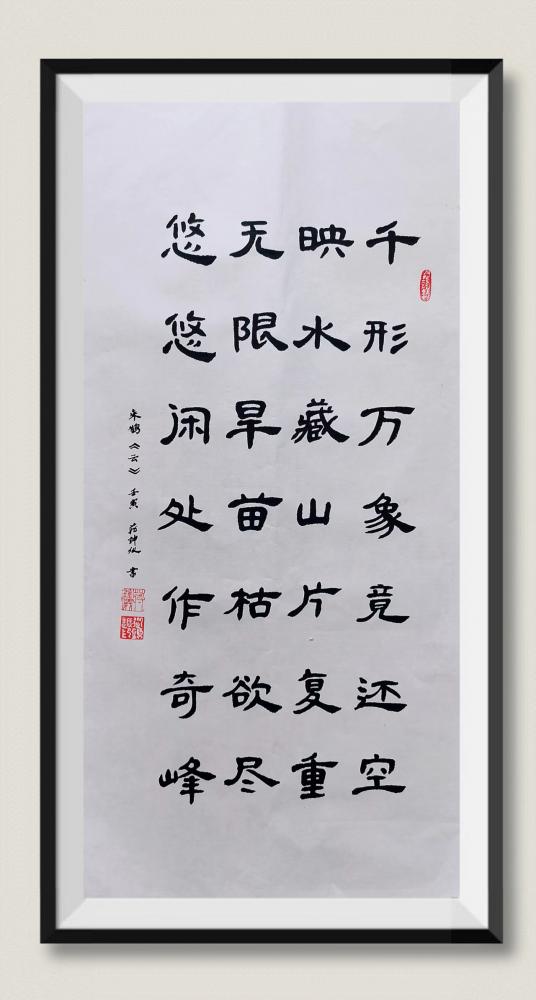 千形万象竟还空
映水藏山片复重
无限旱苗枯欲尽
悠悠闲处作奇峰
来鹄《云》 壬寅 蒋坤 书